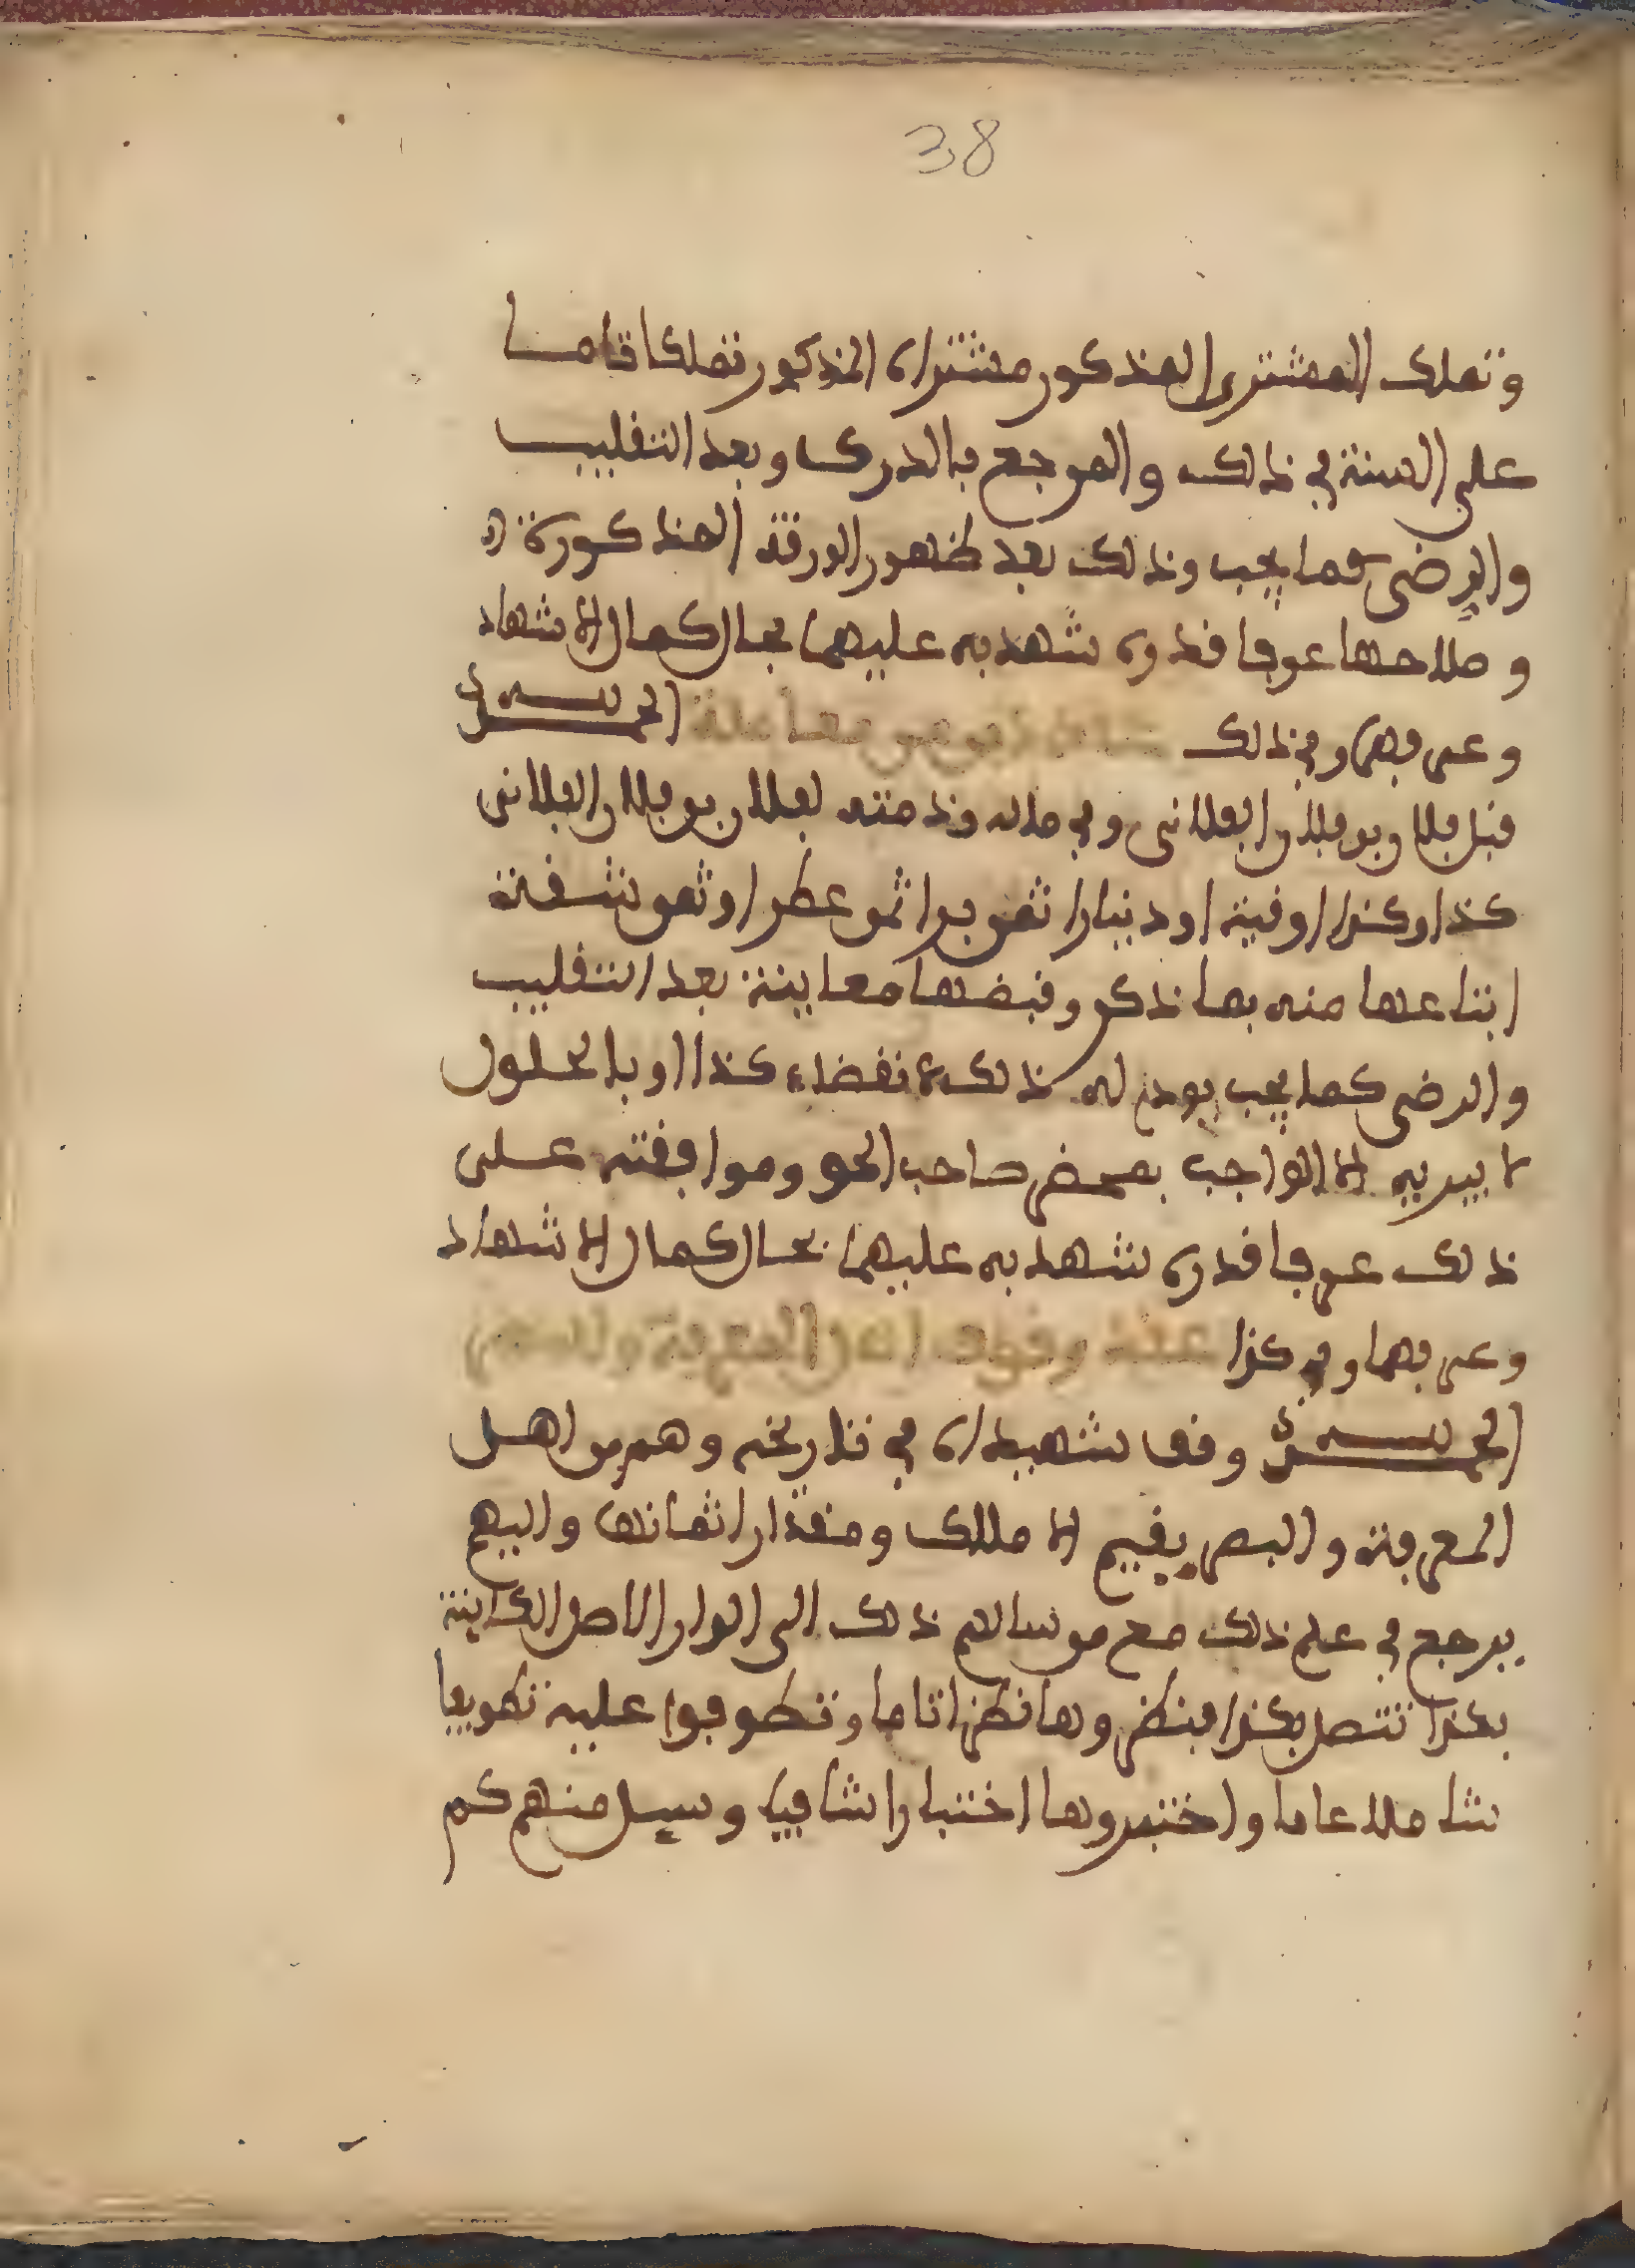 38
وتملك المشترى المذكور مشتراه المذكور تملكا تاما
على السنة في ذلك والمرجع بالدرك وبعد التقليب
والرضى كما يجب وذلك بعد ظهور الورقة المذكورة
وصلاحها عرفا قدره شهد به عليهما بحال كمال الاشهاد
وعرفهما وفي ذلك عقد دين من معاملة الحمد لله
قبل فلان بن فلان الفلاني وفي ماله وذمته لفلان بن فلان الفلاني
كذا وكذا اوقية او دينارا ثمن بز او ثمن عطر او ثمن شقة
ابتاعها منه بما ذكر وقبضها معاينة بعد التقليب
والرضى كما يجب يودي له ذلك لانقضاء كذا او بالحلول
لا يبريه الا الواجب بمحضر صاحب الحق وموافقته على
ذلك عرفا قدره شهد به عليهما بحال كمال الاشهاد
وعرفهما وفي كذا عقد وقوف اهل المعرفة والبصر
الحمد لله وقف شهيداه في تاريخه وهم من اهل
المعرفة والبصر بقيم الاملاك ومقدار اثمانها واليهم
يرجع في علم ذلك مع من سالهم ذلك الى الدار الاصل الكاينة
بكذا تتصل بكذا فنظروها نظرا تاما وتطوفوا عليه تطويفا
شاملا عاما واختبروها اختبارا شافيا وسيل منهم كم